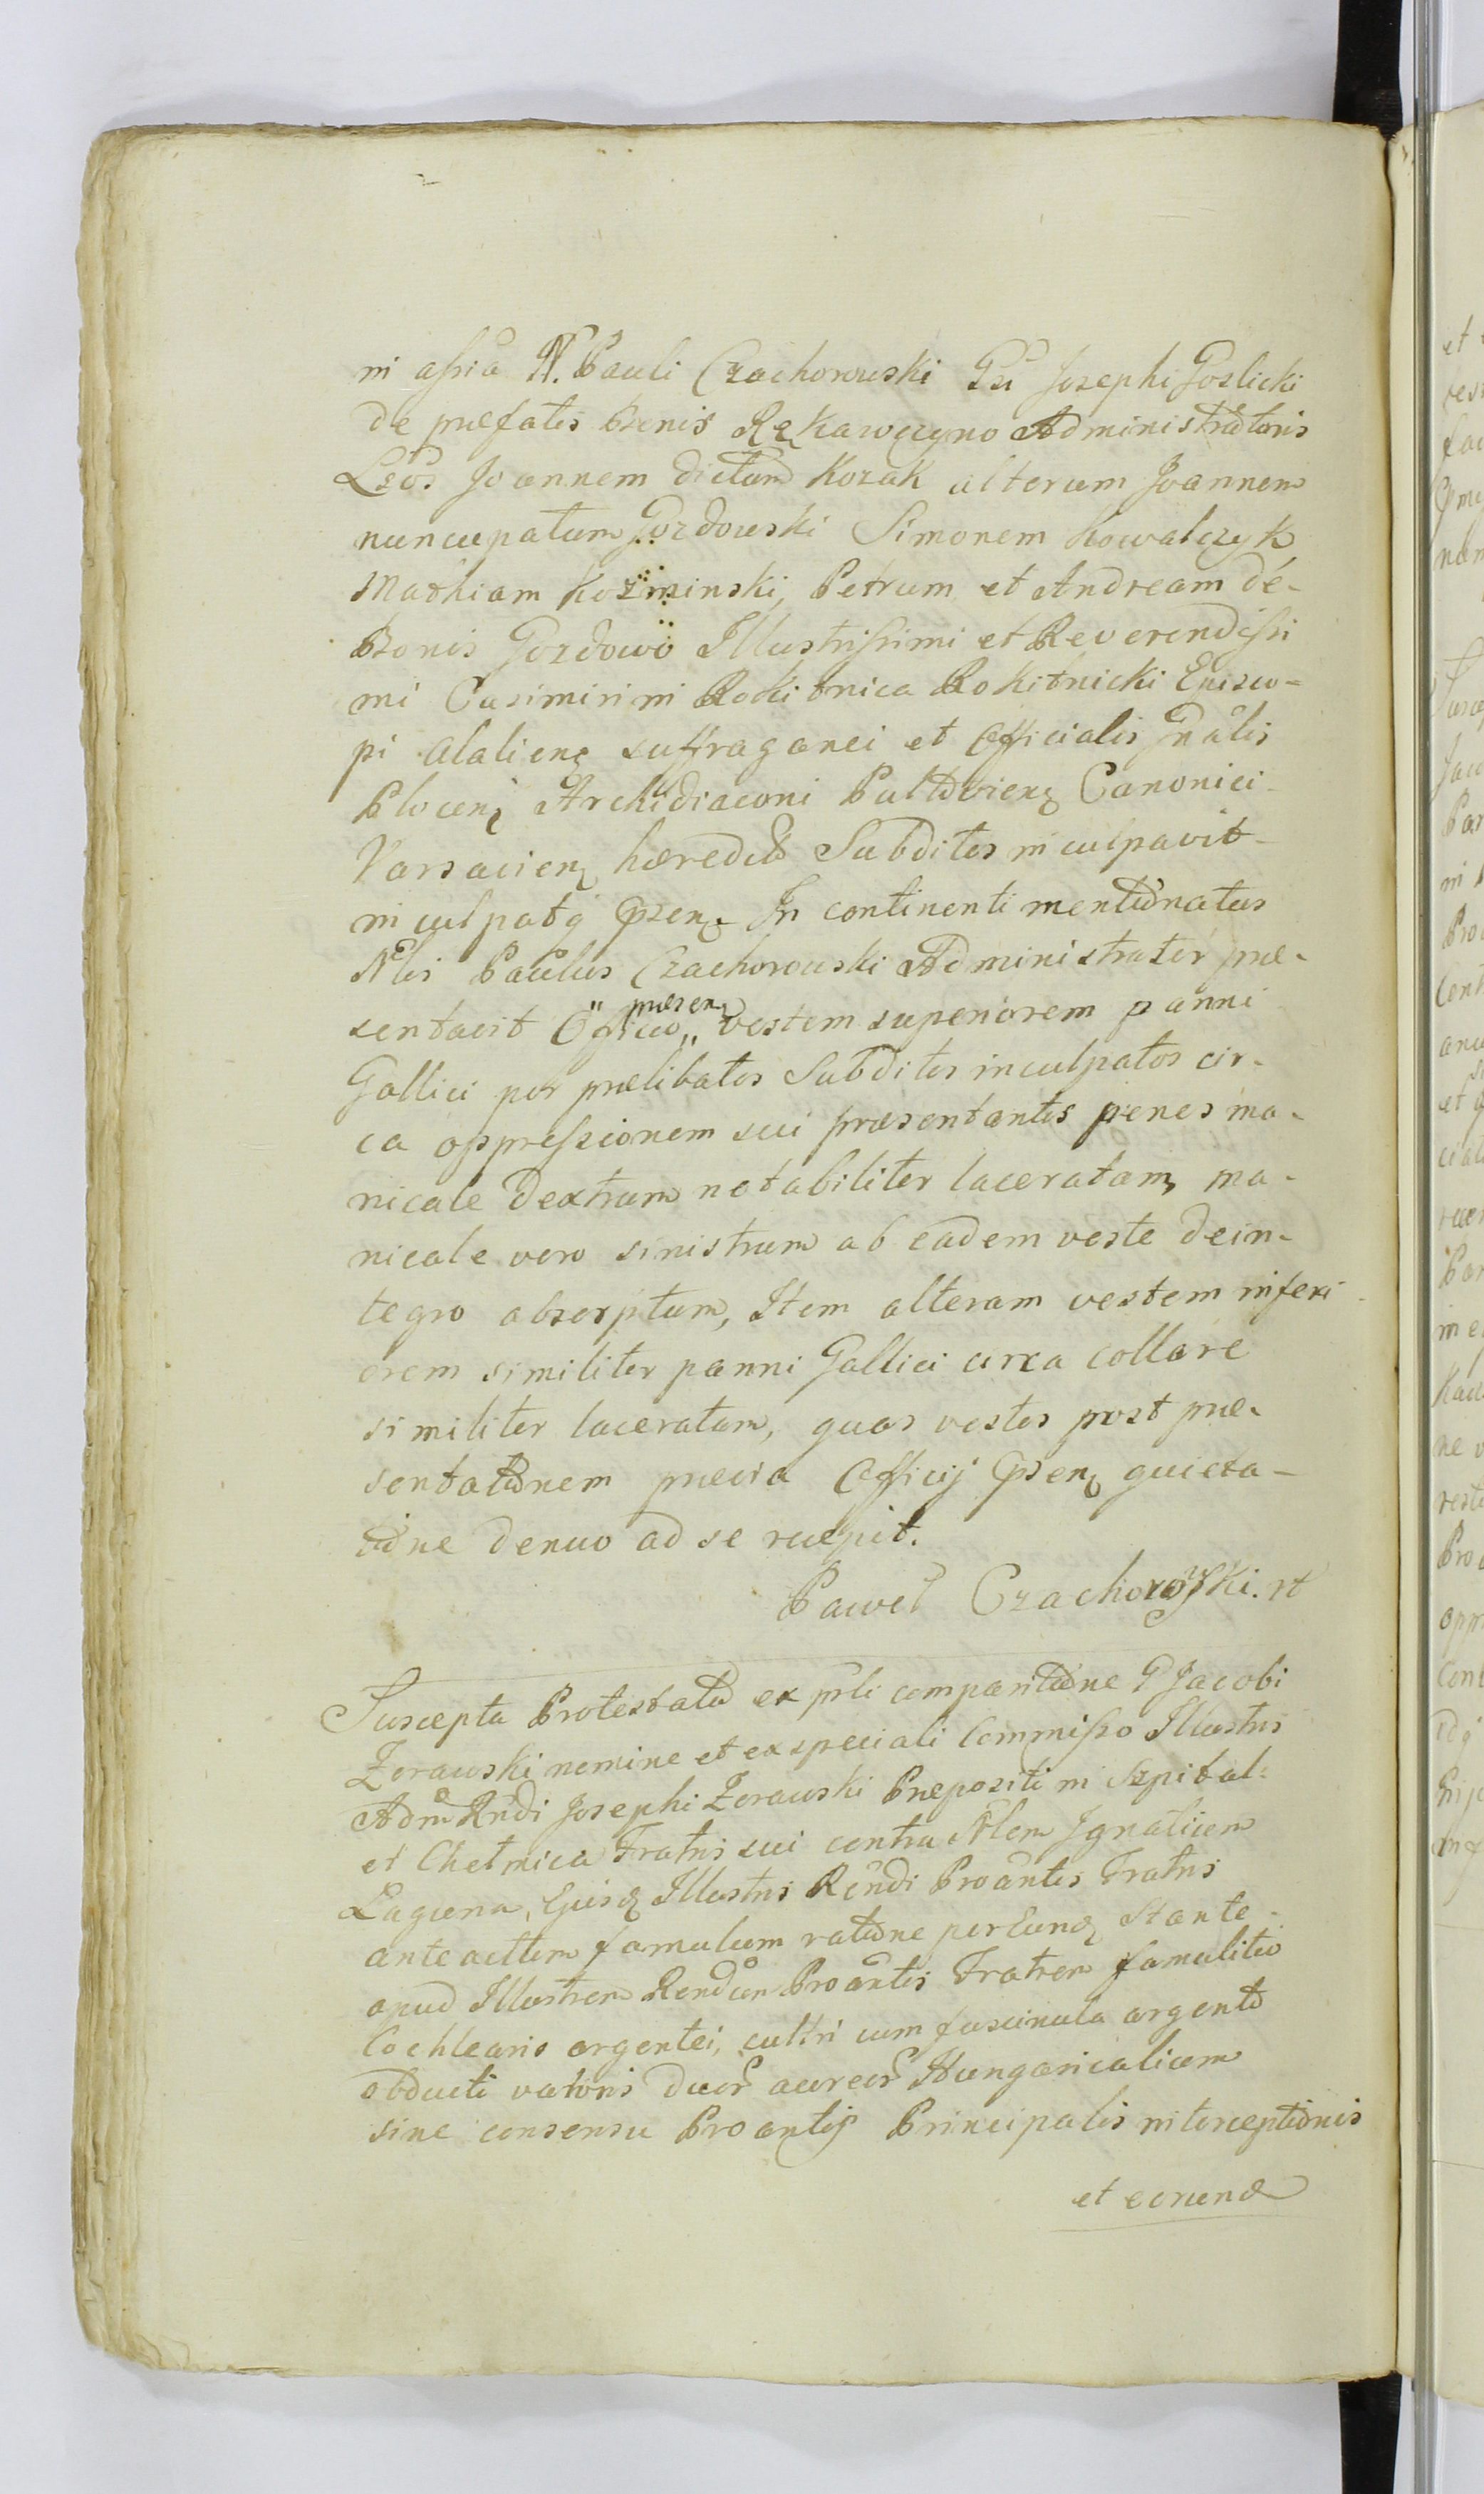 in assia N. Pauli Czachorowski Gsi Josephi Goslicki
de præfatis Bonis Rękawczyno Administratoris
Lsos Joannem dictum Kozak alterum Joannem
nuncupatum Gozdowski Simonem Kowalczyk
Mathiam Kozminski, Petrum et Andream de-
Bonis Gozdowo Illustrissimi et Reverendissi
mi Casimiri in Rokitnica Rokitnicki Episco-
pi Alalienę suffraganei et Officialis Gnalis
Plocenę Archidiaconi Pultovienę Canonici
Varsavienę hæredit Subditos inculpavit-
inculpatq Psenę. In continenti mentionatus
Nlis Paulus Czachorowski Administrator præ-
sentavit Officio præsenę vestem superiorem panni
Gallici per prælibatos Subditos inculpatos cir-
ca oppressionem sui præsentantis penes ma-
nicale dextrum notabiliter laceratam, ma-
nicale vero sinistrum ab eadem veste dein-
tegro absorptum, Item alteram vestem inferi
orem similiter panni Gallici circa collare
similiter laceratam, quas vestes post præ-
sentationem prævia Officij Psenę quieta-
tione denuo ad se recepit.
Paweł Czachorowski. rt
Suscepta Protestatio ex psli comparitione G Jacobi
Zorawski nomine et ex speciali Commisso Illustris
Adm Rndi Josephi Zorawski Præpositi in Szpital:
et Chełmica Fratris sui contra Nlem Ignatium
Laguna, Ejusdę Illustris Rendi Proantis Fratris
anteactum famulum ratione per Eundę Stante-
apud Illustrem Rendum Proantis Fratrem famulitio
Cochlearis argentei, cultri cum fuscinula argento
obducti valoris duor aureor Hungaricalium
sine consensu Proantis Principalis interceptionis
et eorund